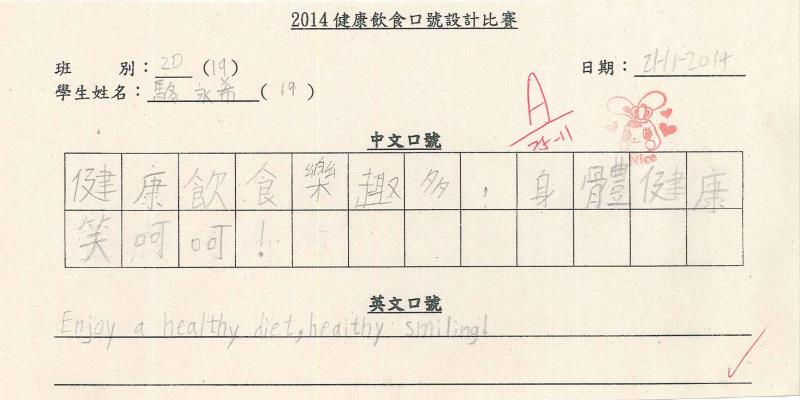 2014健康飲食口號設計比賽
班 別：2D (19) 日期：21-11-2014
學生姓名：駱永希 (19)
A
25-11
Nice
中文口號
健康飲食樂趣多，身體健康
笑呵呵！
英文口號
Enjoy a healthy diet, heaithy smiling!